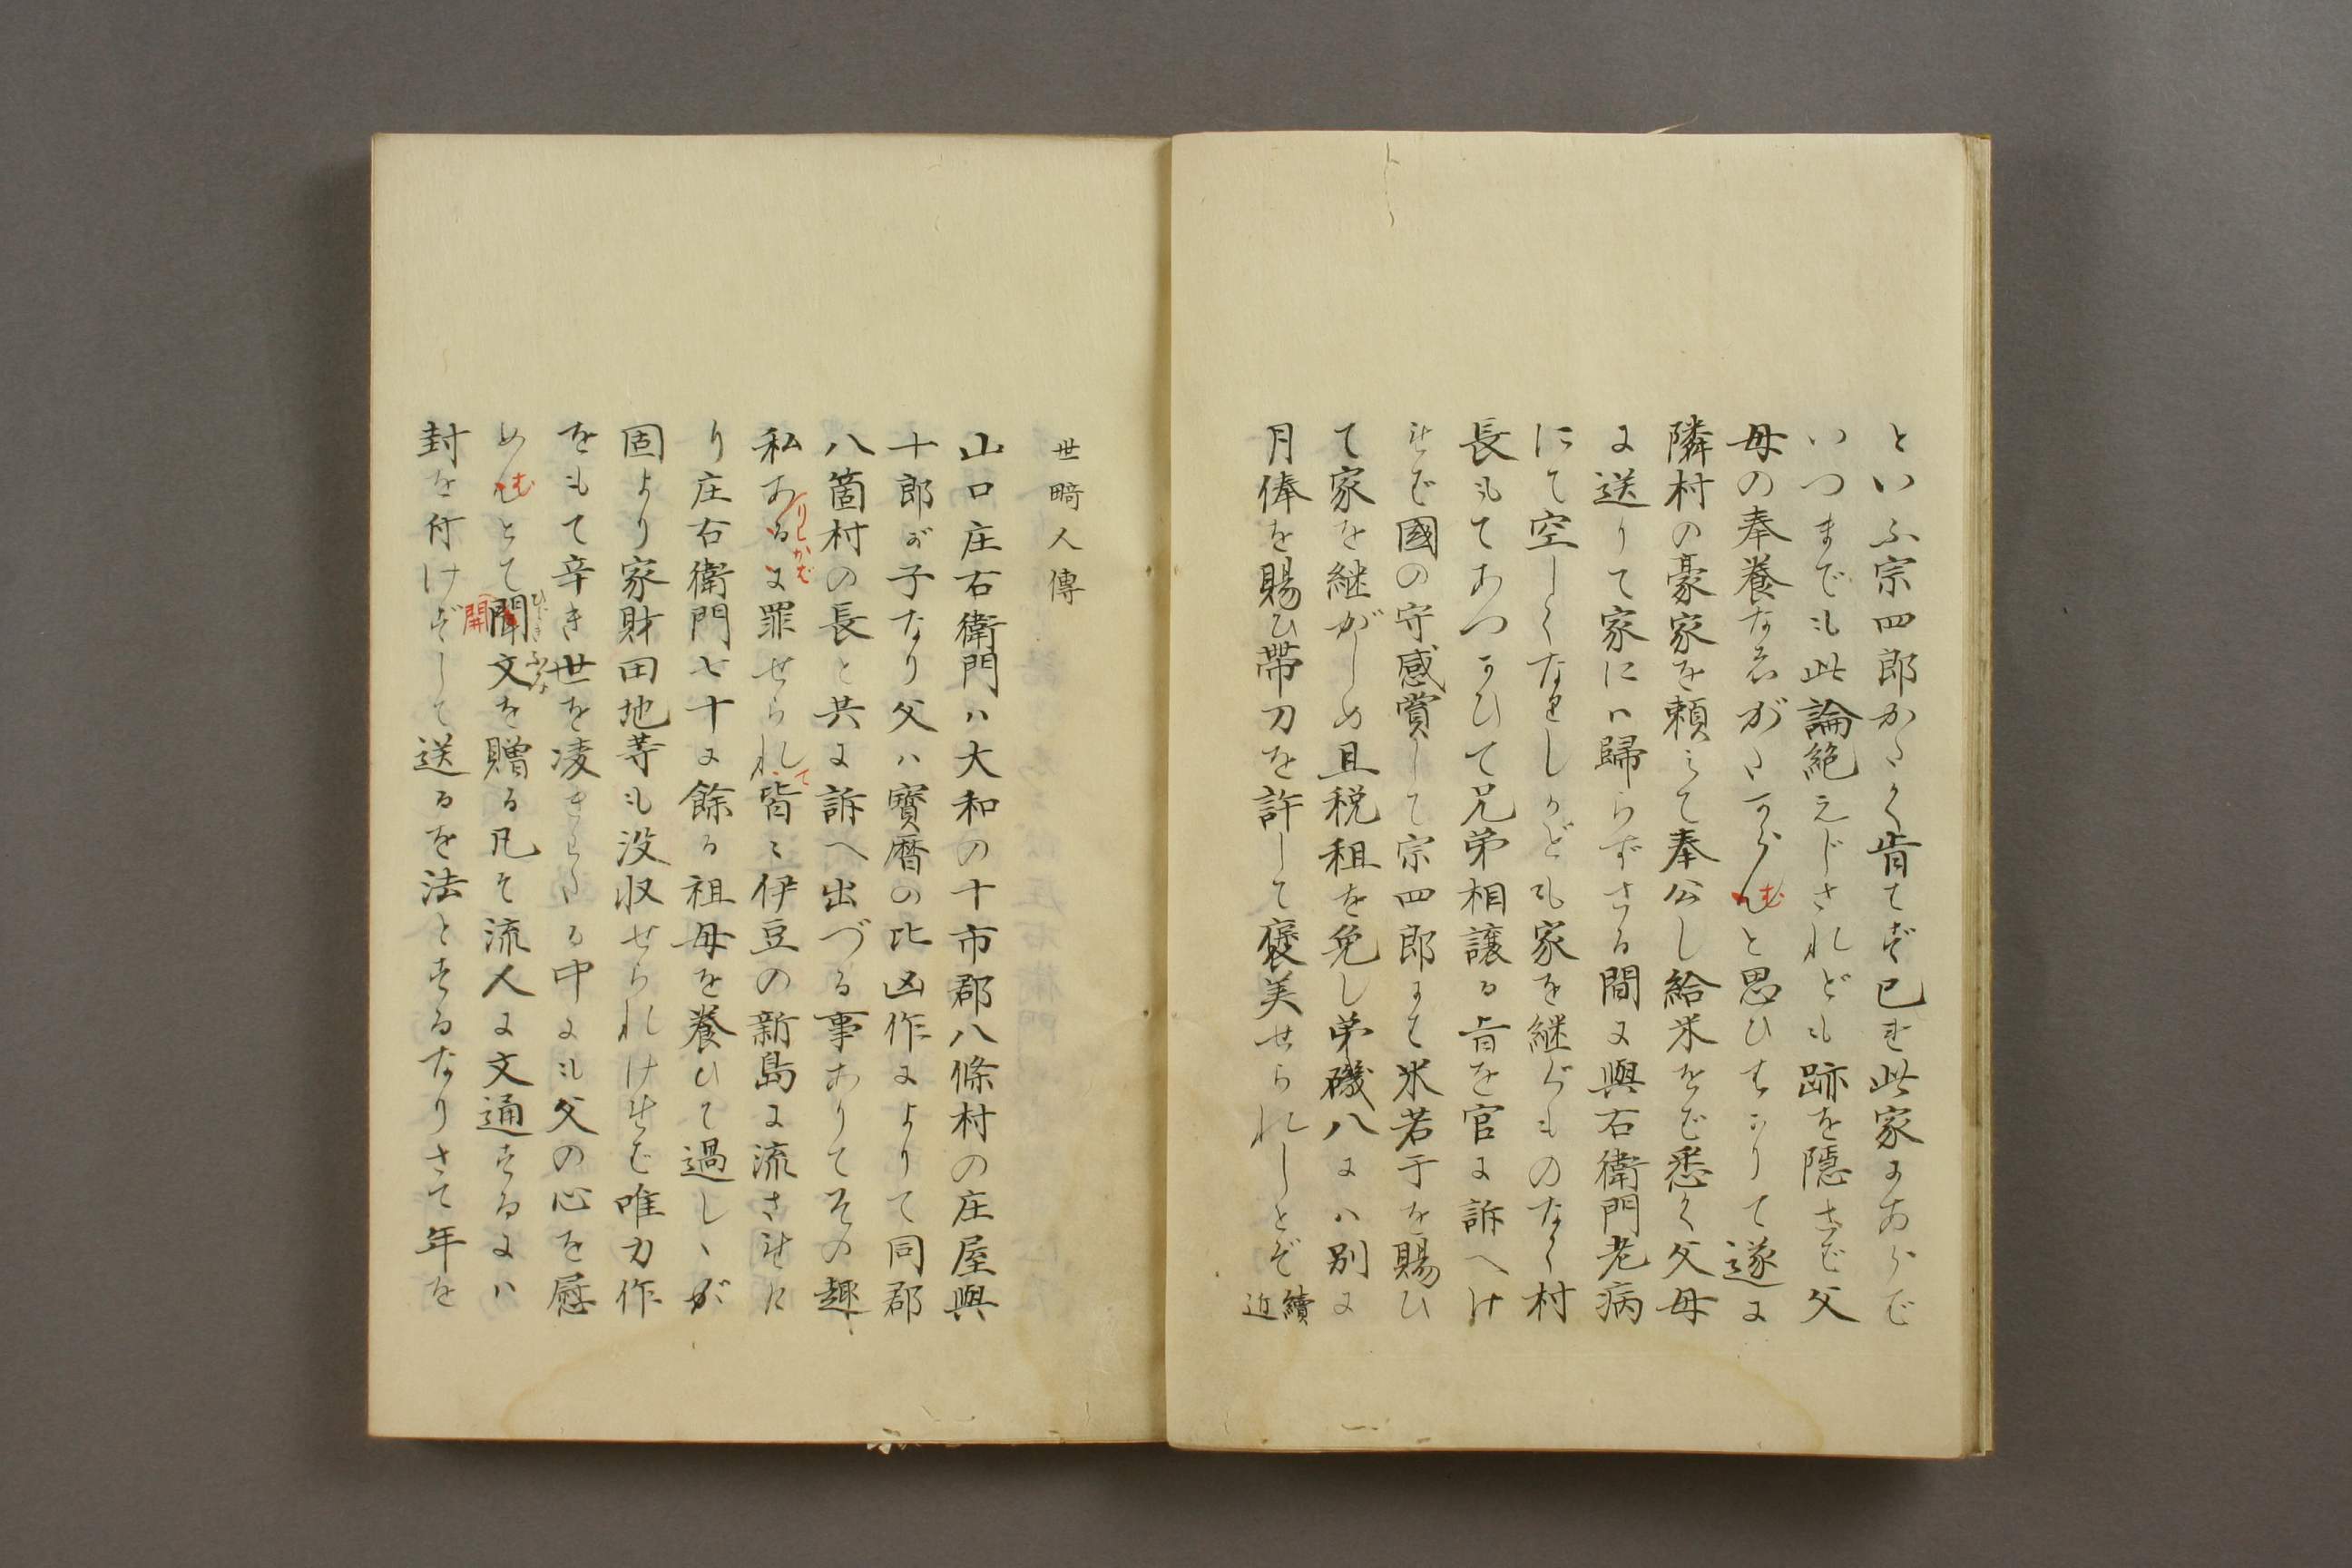 といふ宗四郎かたく肯てず已に此家にあらで
いつまでも此論絶えじされども跡を隠さで父
母の奉養なしがたからんむと思ひはかりて遂に
隣村の豪家を頼みて奉公し給米をば悉く父母
に送りて家にハ歸らずさる間に與右衛門老病
にて空しくなりしかども家を継ぐものなく村
長もてあつかひて兄弟相譲る旨を官に訴へけ
れば國の守感賞して宗四郎にハ米若干を賜ひ
て家を継がしめ且税租を免し弟磯八にハ別に
月俸を賜ひ帯刀を許して褒美せられしとぞ續近
世畸人傳
山口庄右衛門ハ大和の十市郡八條村の庄屋與
十郎が子なり父ハ寳暦の比凶作によりて同郡
八箇村の長と共に訴へ出づる事ありてその趣
私あるにりしかむ罪せられて皆〻伊豆の新島に流された
り庄右衛門七十に餘る祖母を養ひて過しゝが
固より家財田地等も没収せられければ唯力作
をもて辛き世を凌ぎたる中にも父の心を慰
めんむとて聞開文ひらきぶみを贈る凡そ流人に文通するにハ
封を付けずして送るを法とするなりさて年を